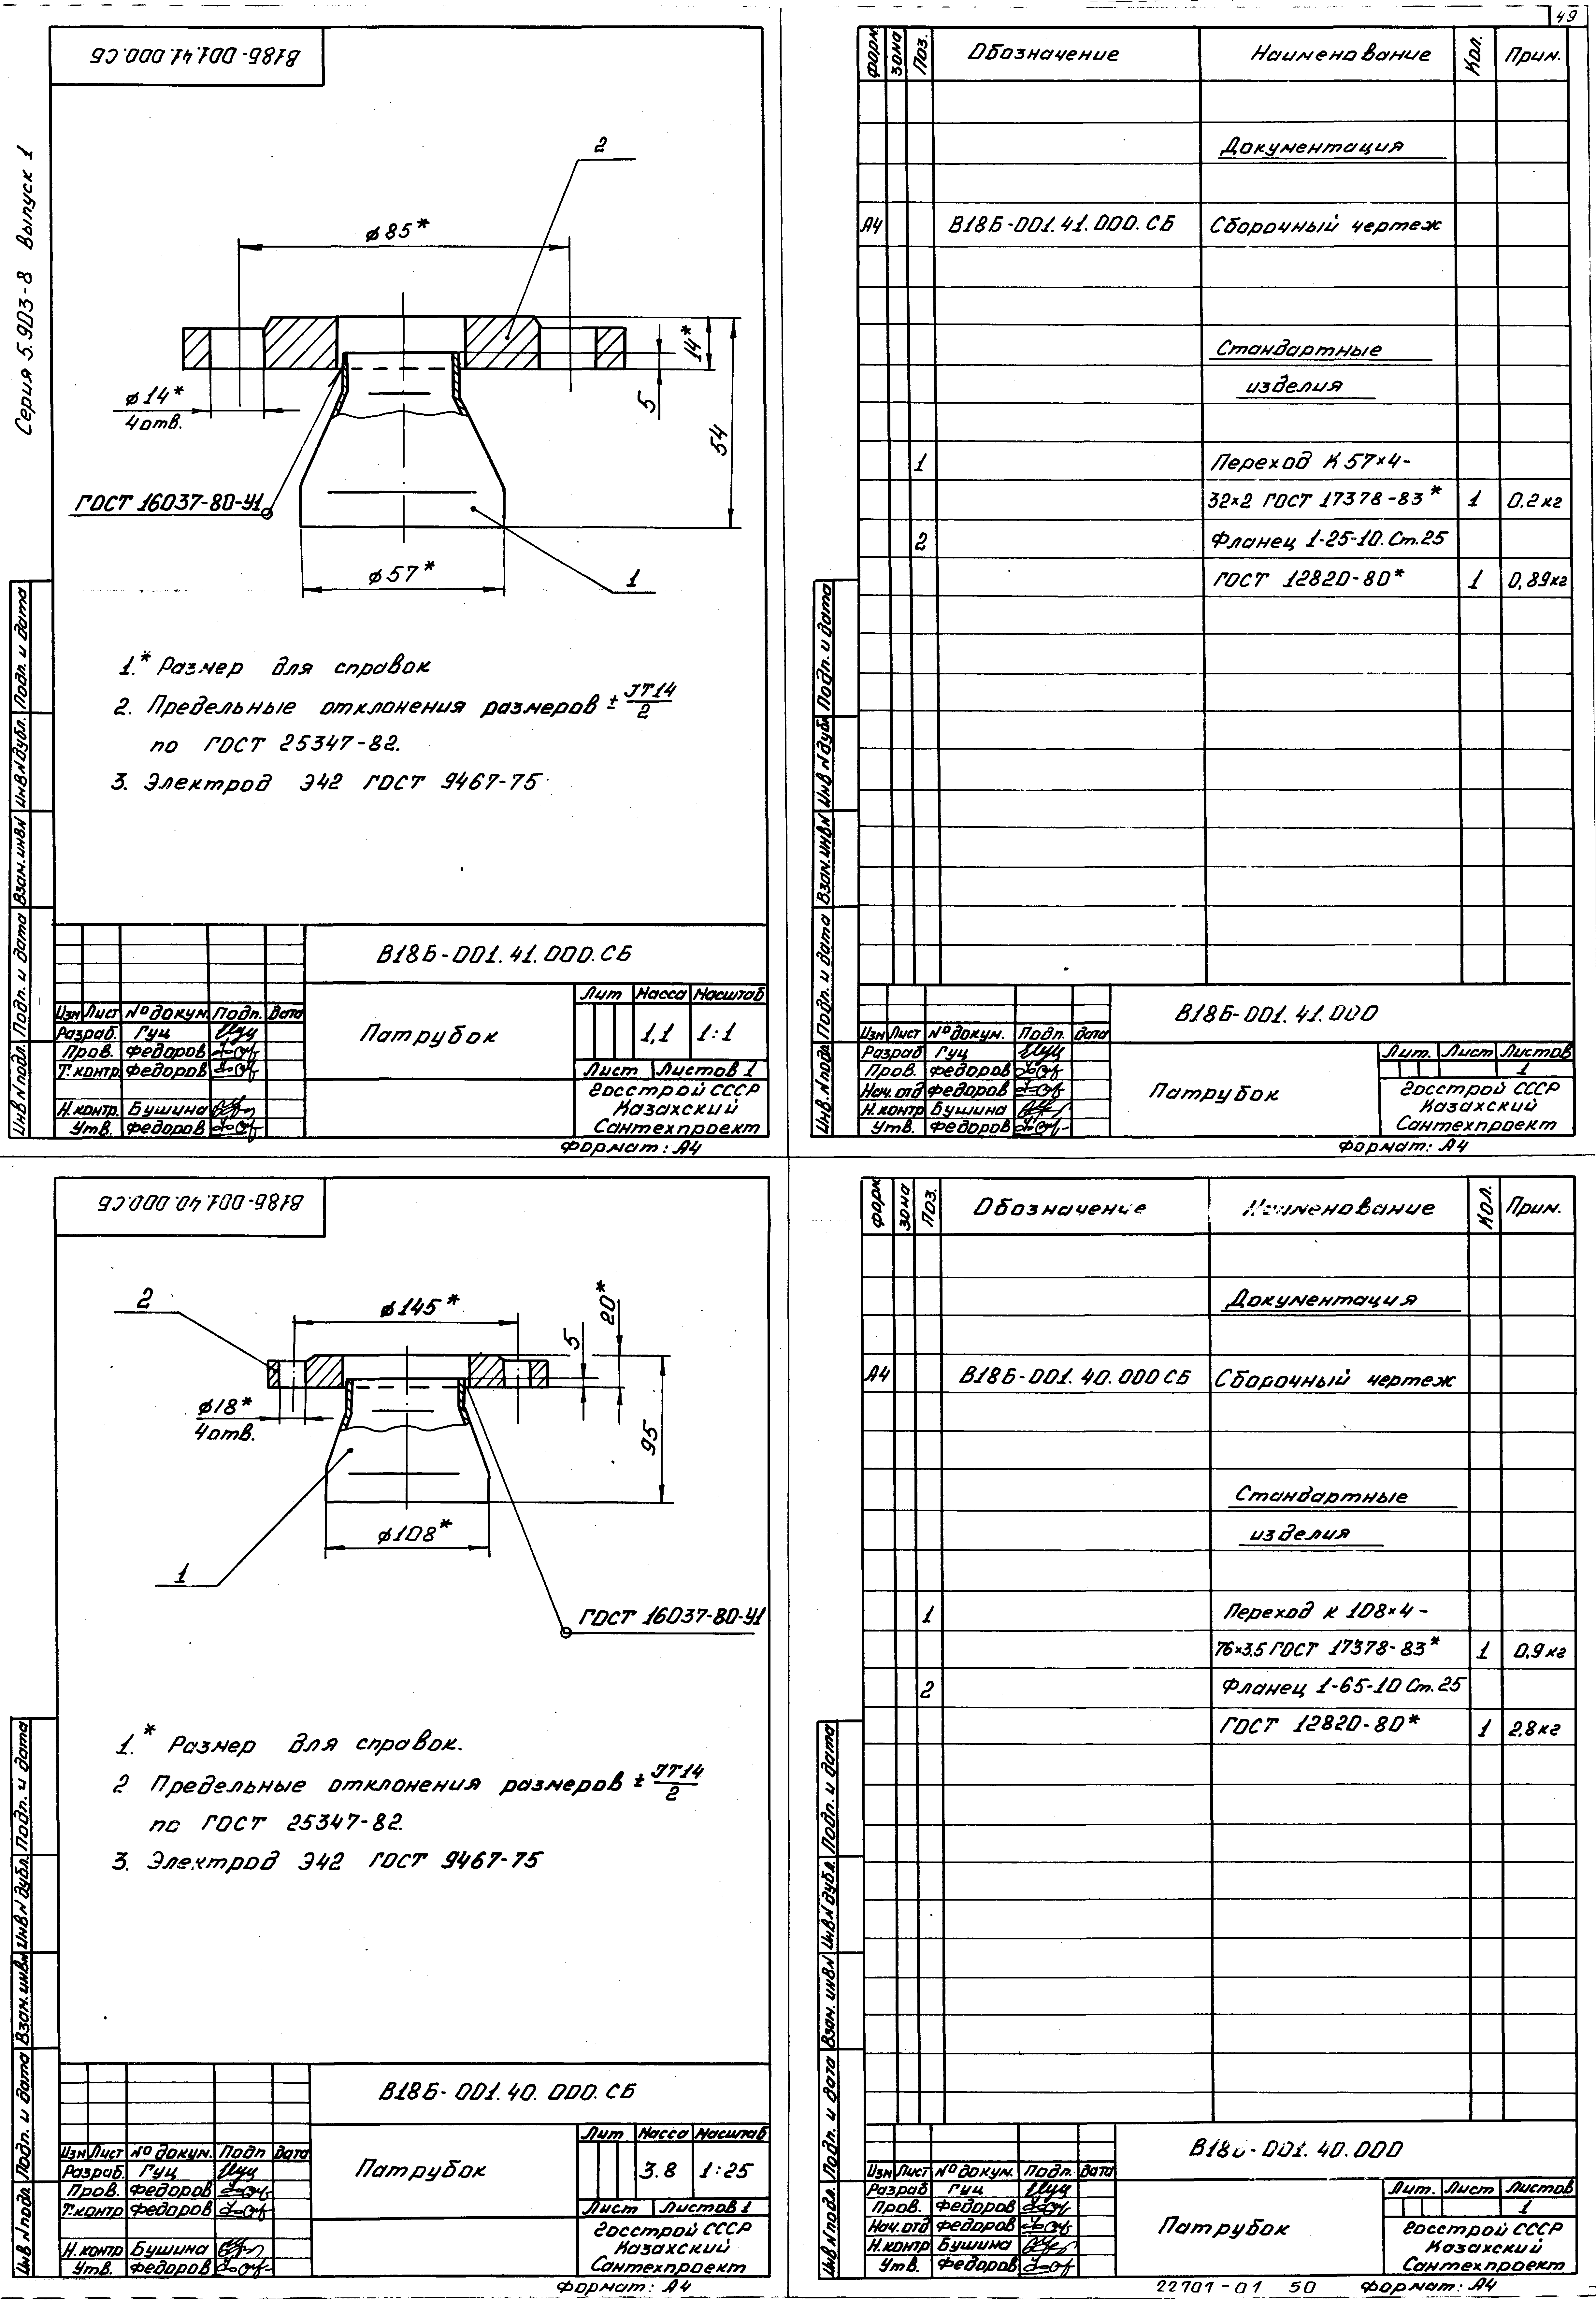 49
В18Б-001.41.000.СБ
Серия 5.903-8 Выпуск 1
2
ø85*
14*
ø14*
4отв.
5
54
ГОСТ 16037-80-У1
ø57*
1
1.* Размер для справок
2. Предельные отклонения размеров ± JT14/2
по ГОСТ 25347-82.
3. Электрод Э42 ГОСТ 9467-75
В18Б-001.41.000.СБ
Лит Масса Масштаб
Изм Лист № докум. Подп. Дата
Разраб. Гуц
Патрубок
1,1 1:1
Пров. Федоров
Т.контр. Федоров
Лист Листов 1
Госстрой СССР
Н.контр. Бушина
Казахский
Утв. Федоров
Сантехпроект
Формат: А4
Инв N подл. Подп. и дата Взам. инв N Инв N дубл. Подп. и дата
форм. зона Поз. Обозначение Наименование Кол. Прим.
Документация
А4 В18Б-001.41.000.СБ Сборочный чертеж
Стандартные
изделия
1 Переход К 57×4-
32×2 ГОСТ 17378-83* 1 0,2 кг
2 Фланец 1-25-10.Ст.25
ГОСТ 12820-80* 1 0,89кг
В18Б-001.41.000
Изм Лист № докум. Подп. дата
Разраб Гуц
Лит. Лист Листов
Пров. Федоров
1
Нач.отд Федоров
Патрубок
Госстрой СССР
Н.контр Бушина
Казахский
Утв. Федоров
Сантехпроект
Формат: А4
Инв. N подл. Подп. и дата Взам. инв N Инв N дубл. Подп. и дата
В18Б-001.40.000.СБ
2
ø145*
20*
5
ø18*
4отв.
95
ø108*
1
ГОСТ 16037-80-У1
1.* Размер для справок.
2. Предельные отклонения размеров ± JT14/2
по ГОСТ 25347-82.
3. Электрод Э42 ГОСТ 9467-75
В18Б-001.40.000.СБ
Лит Масса Масштаб
Изм Лист № докум. Подп дата
Разраб. Гуц
Патрубок
3.8 1:25
Пров. Федоров
Т.контр Федоров
Лист Листов 1
Госстрой СССР
Н.контр Бушина
Казахский
Утв. Федоров
Сантехпроект
Формат: А4
Инв N подл. Подп. и дата Взам. инв N Инв N дубл. Подп. и дата
форм зона Поз. Обозначение Наименование Кол. Прим.
Документация
А4 В18Б-001.40.000 СБ Сборочный чертеж
Стандартные
изделия
1 Переход к 108×4-
76×3,5 ГОСТ 17378-83* 1 0,9 кг
2 Фланец 1-65-10 Ст.25
ГОСТ 12820-80* 1 2,8 кг
В18Б-001.40.000
Изм Лист № докум. Подп. дата
Разраб Гуц
Лит. Лист Листов
Пров. Федоров
1
Нач.отд Федоров
Патрубок
Госстрой СССР
Н.контр Бушина
Казахский
Утв. Федоров
Сантехпроект
22701-01 50 Формат: А4
Инв N подл. Подп. и дата Взам. инв N Инв N дубл. Подп. и дата